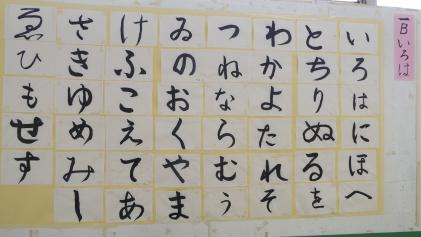 一Bいろは
いろはにほへ
とちりぬるを
わかよたれそ
つねならむう
ゐのおくやま
けふこえてあ
さきゆめみし
ゑひもせす